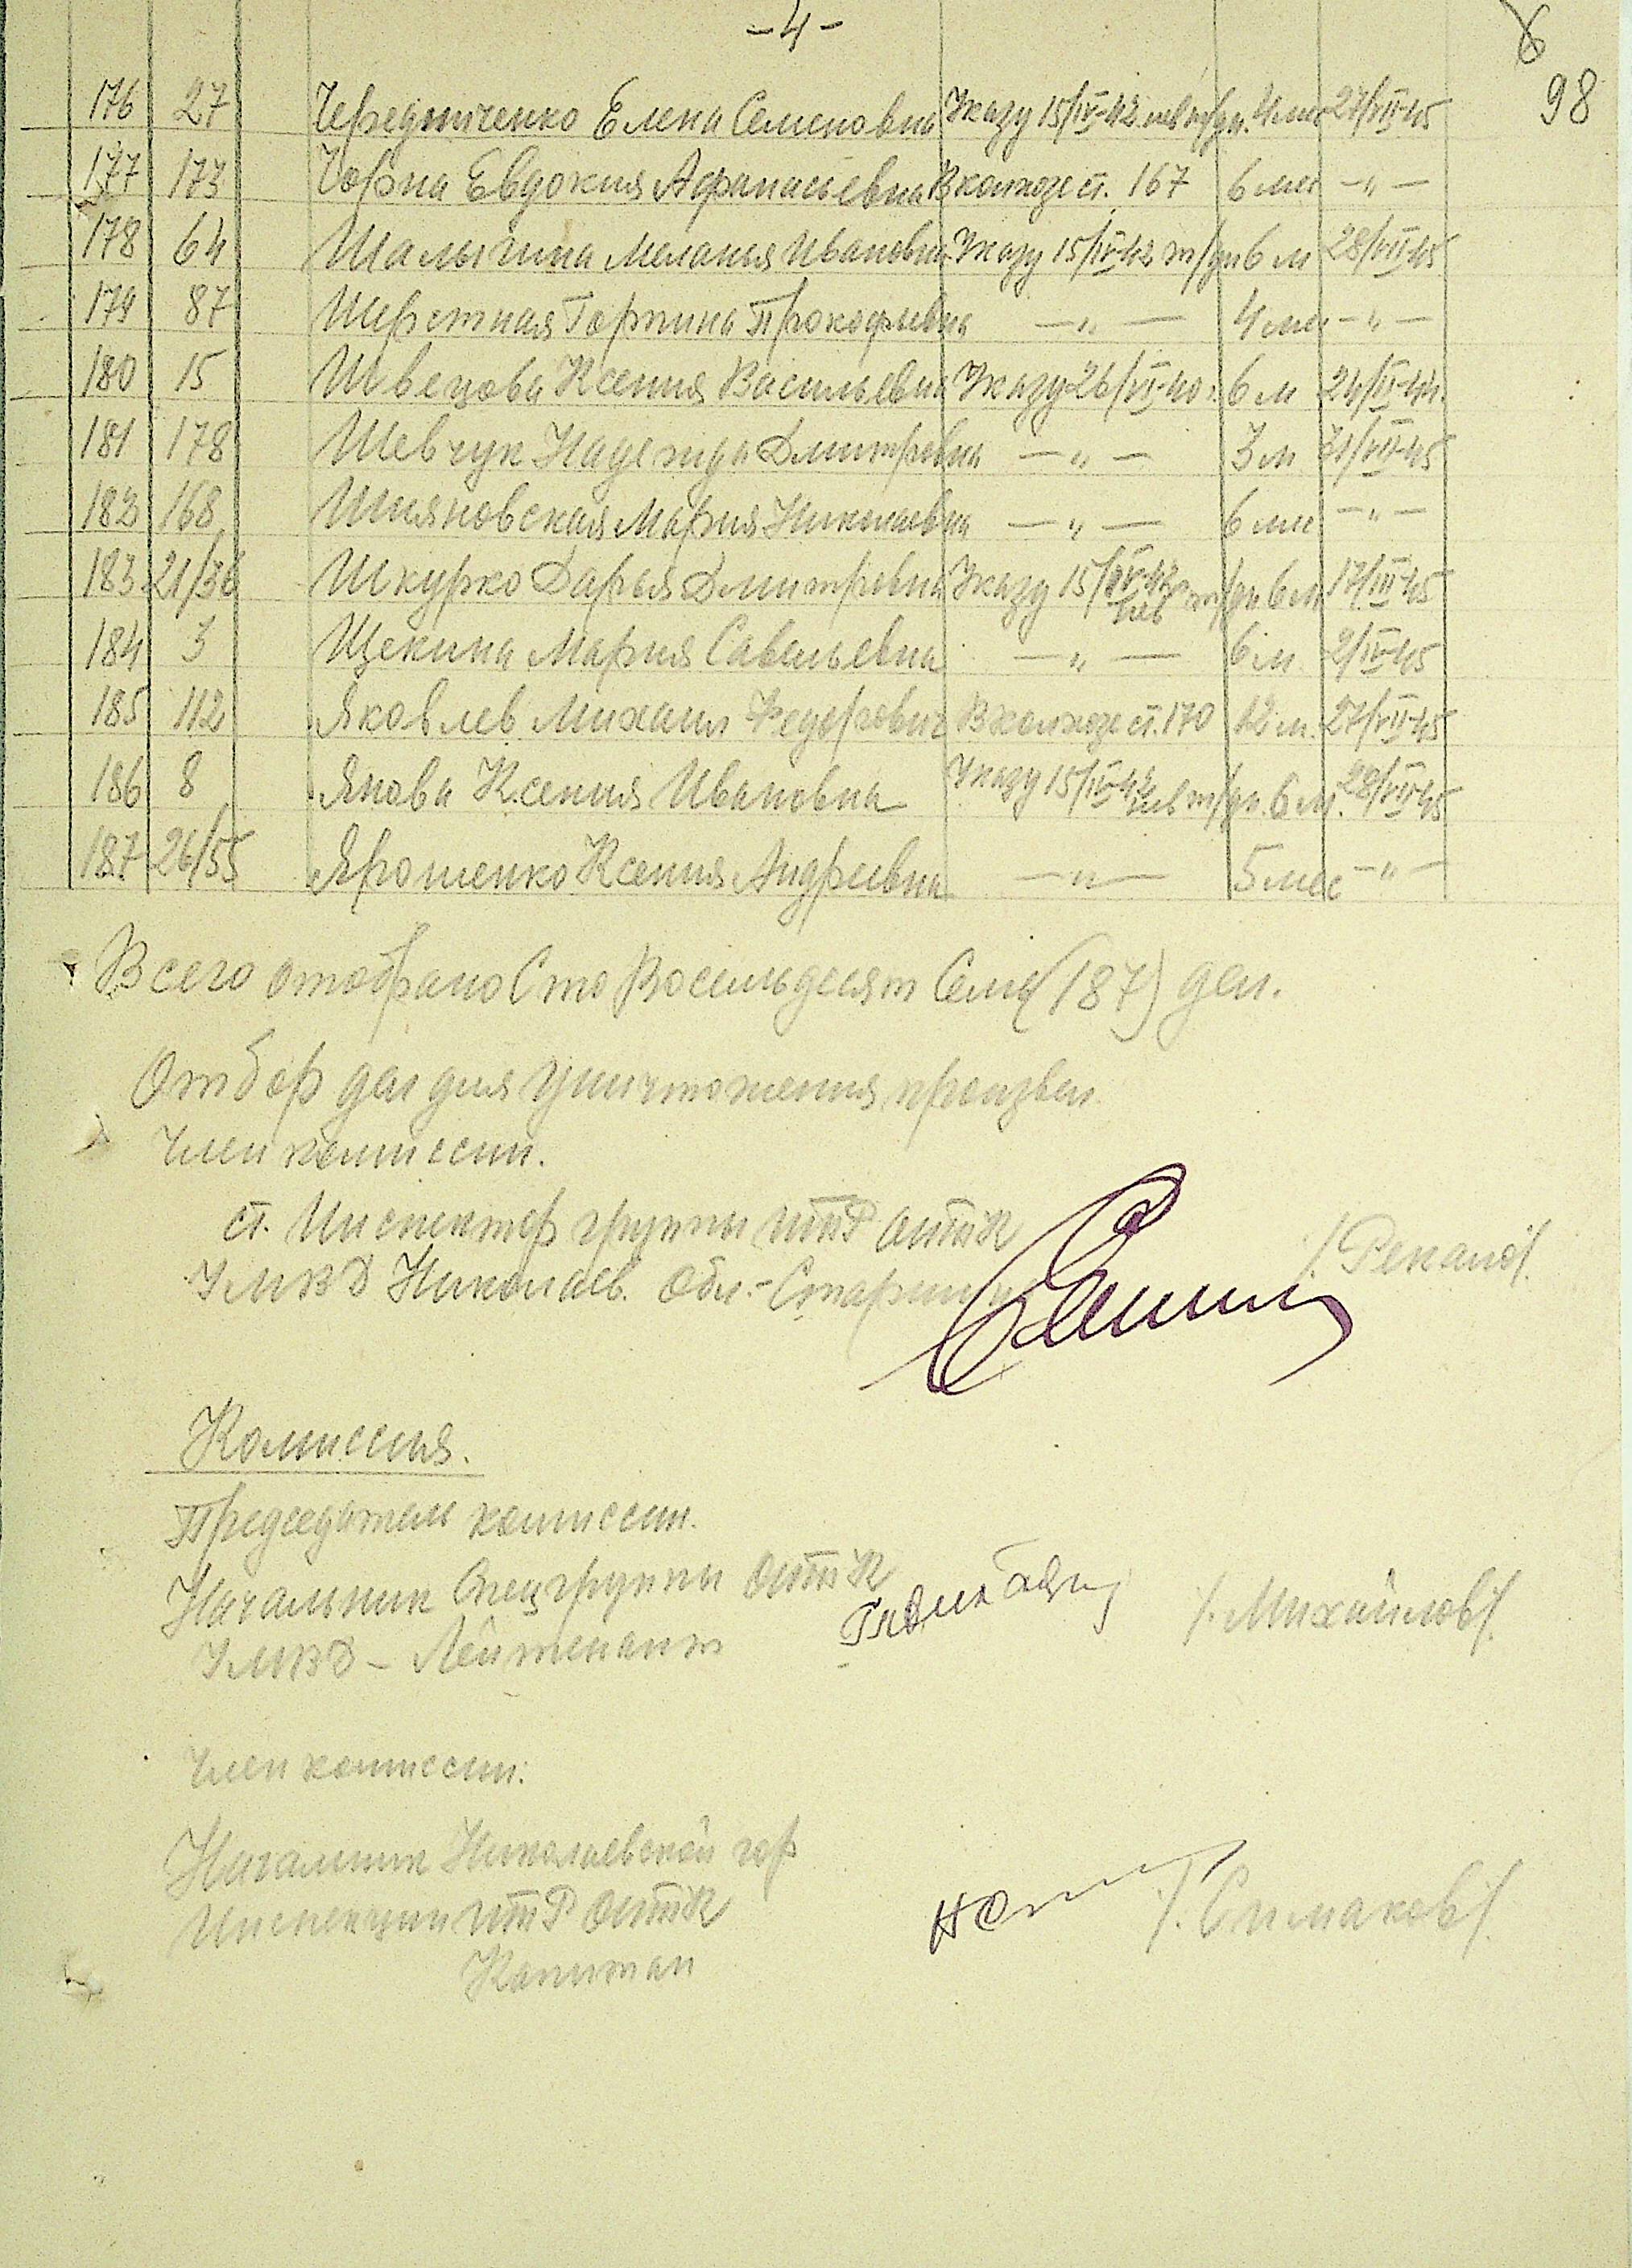 -4-
98
176 27 Чередниченко Елена Семеновна Указу 15/IV-42 нев тр/дн. 4 мес 27/VII-45
177 173 Чорна Евдокия Афанасьевна В колхозе ст. 167 6 мес —„—
178 64 Шалыгина Меланья Ивановна Указу 15/IV-42 т/дн 6 м 28/VII-45
179 87 Шерстная Горпина Прокофьевна —„— 4 мес —„—
180 15 Швецова Ксения Васильевна Указу 26/VI-40 г. 6 м 24/VI-44.
181 178 Шевчук Надежда Дмитревна —„— 3 м 31/VII-45
182 168 Шияновская Мария Николаевна —„— 6 мес —„—
183 21/36 Шкурко Дарья Дмитревна Указу 15/IV-42 нев т/дн. 6 м 17/III-45
184 3 Щекина Мария Савельевна —„— 6 м. 2/IV-45
185 112 Яковлев Михаил Федорович В колхозе ст. 170 12 м. 27/VII-45
186 8 Янова Ксения Ивановна Указу 15/IV-42 нев т/дн. 6 м. 28/VII-45
187 26/55 Ярошенко Ксения Андреевна —„— 5 мес —„—
Всего отобрано Сто Восемьдесят Семь (187) дел.
Отбор дел для уничтожения произвел
Член комиссии.
ст. Инспектор группы ИТР ОИТК
УМВД Николаев. Обл.- Старшина /. Рекало/.
Комиссия.
Председатель комиссии.
Начальник Спецгруппы ОИТК
УМВД – Лейтенант /. Михайлов/.
Член комиссии:
Начальник Николаевской гор
Инспекции ИТР ОИТК
Капитан /. Симаков/.